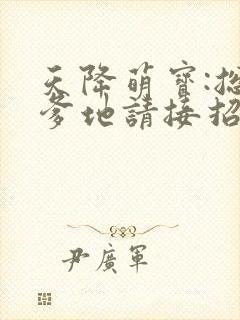 天降萌寶:
爹地請接招
尹廣軍